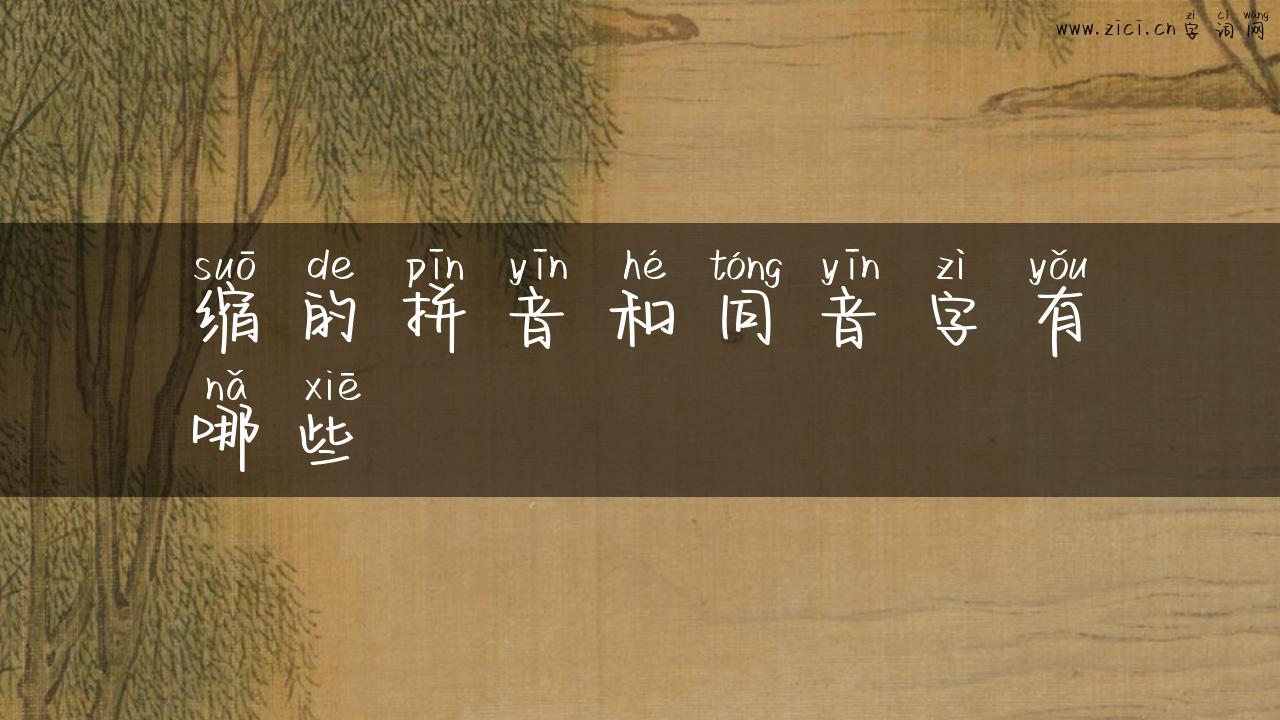 zì cí wǎng
www.zici.cn字词网
suō de pīn yīn hé tóng yīn zì yǒu
缩的拼音和同音字有
nǎ xiē
哪些